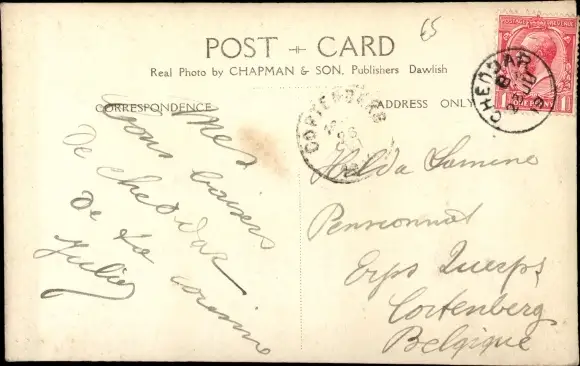 65
POST CARD
Real Photo by CHAPMAN & SON, Publishers Dawlish
CORRESPONDENCE
ADDRESS ONLY
CHEDDAR
CORTENBERG
Mes
bons baisers
De Cheddar
De ta cousine
Julia
Hilda
Pensionnat
Erps Querps
Cortenberg
Belgique